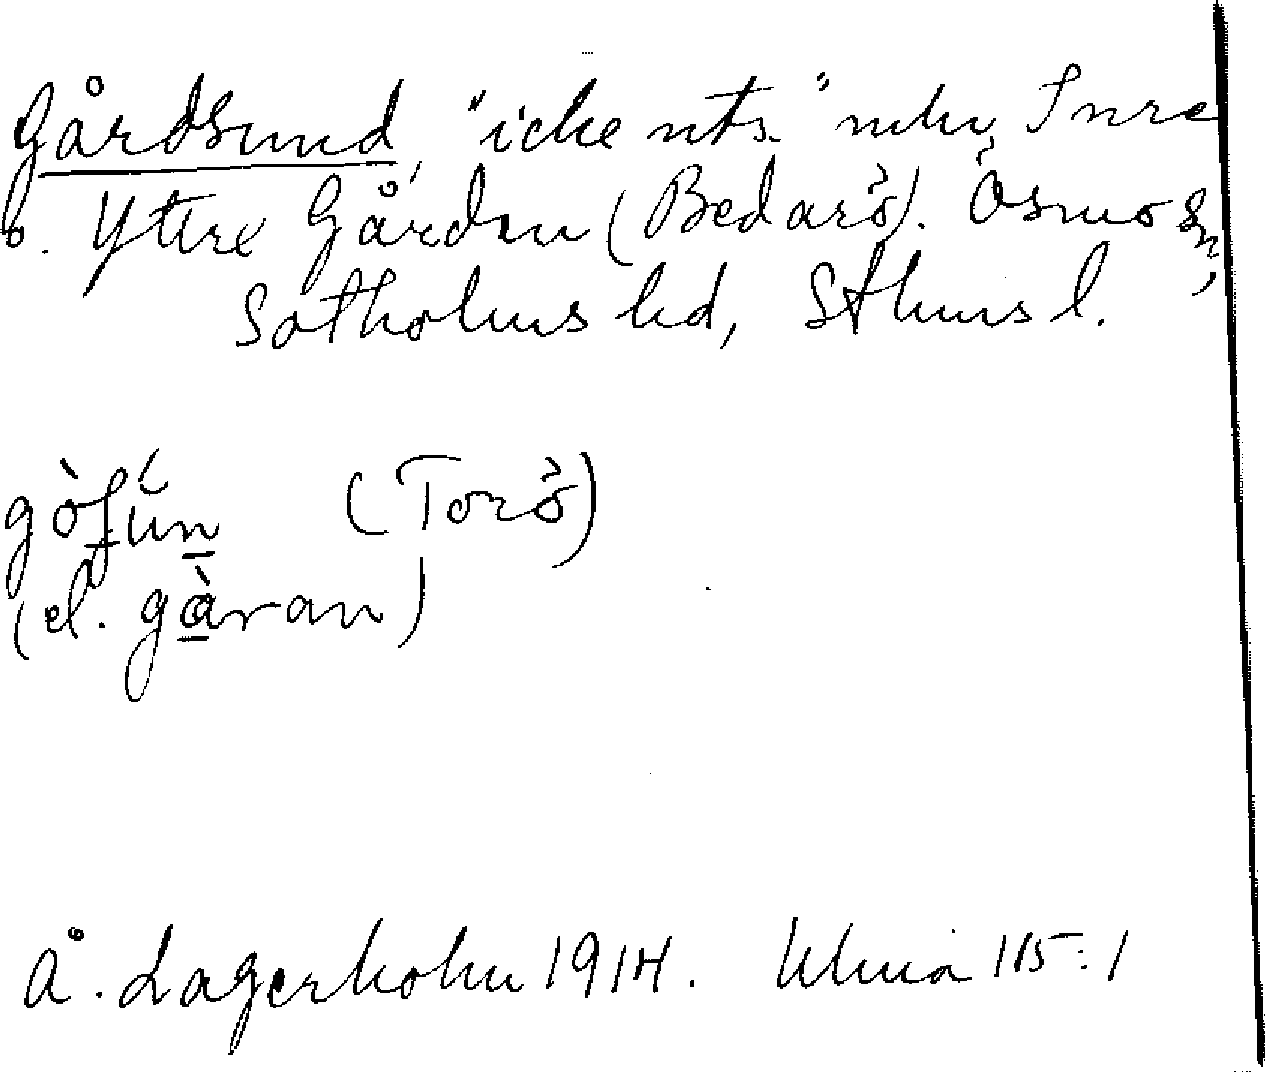 Gårdsund, "icke uts." mln Inre
o. Yttre Gården (Bedarö). Ösmo sn,
Sotholms hd, Sthms l.
gò̱fún (Torö)
(el. gàran)
Å. Lagerholm 1914. Uhma 115:1